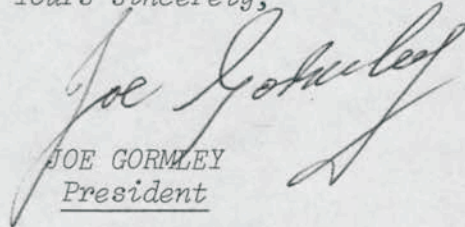 Yours sincerely,
Joe Gormley
JOE GORMLEY
President